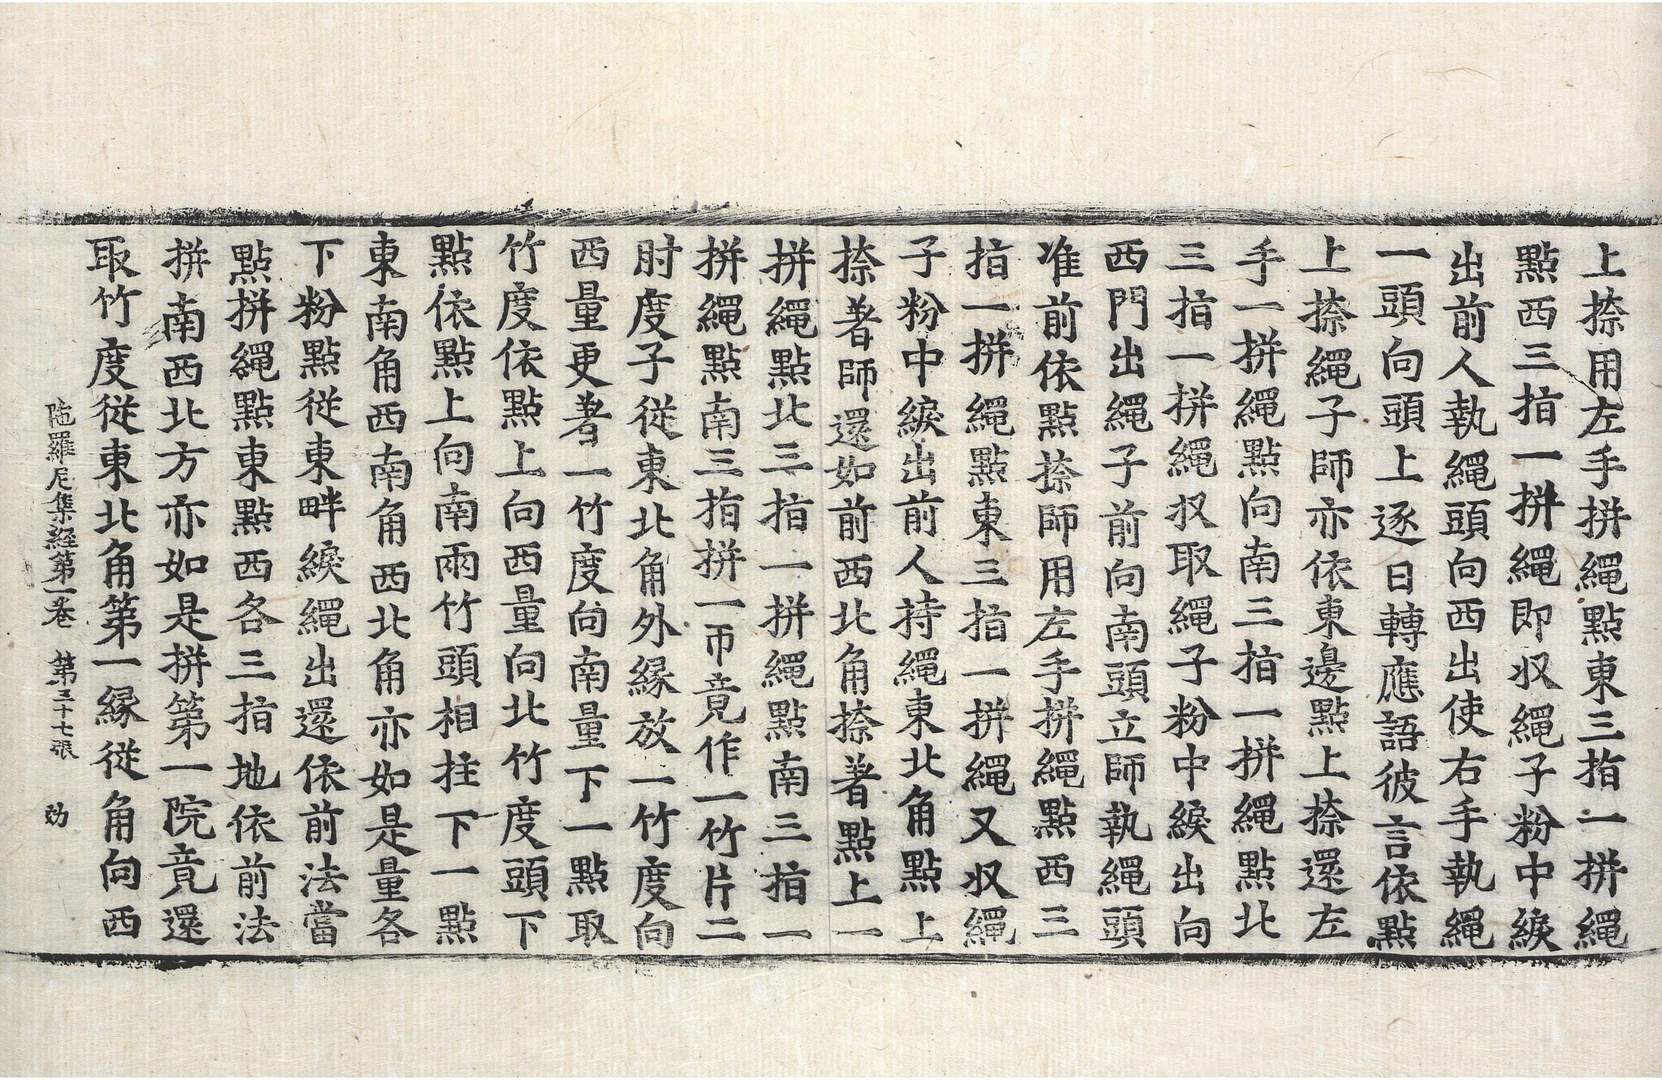 上捺用左手拼繩點東三指一拼繩
點西三指一拼繩即収繩子粉中綟
出前人執繩頭向西出使右手執繩
一頭向頭上逐日轉應語彼言依點
上捺繩子師亦依東邊點上捺還左
手一拼繩點向南三指一拼繩點北
三指一拼繩収取繩子粉中綟出向
西門出繩子前向南頭立師執繩頭
准前依點捺師用左手拼繩點西三
指一拼繩點東三指一拼繩又収繩
子粉中綟出前人持繩東北角點上
捺著師還如前西北角捺著點上一
拼繩點北三指一拼繩點南三指一
拼繩點南三指拼一帀竟作一竹片二
肘度子從東北角外緣放一竹度向
西量更著一竹度向南量下一點取
竹度依點上向西量向北竹度頭下
點依點上向南兩竹頭相拄下一點
東南角西南角西北角亦如是量各
下粉點從東畔綟繩出還依前法當
點拼繩點東點西各三指地依前法
拼南西北方亦如是拼第一院竟還
取竹度從東北角第一緣從角向西
陁羅尼集經第一卷　第三十七張　劝